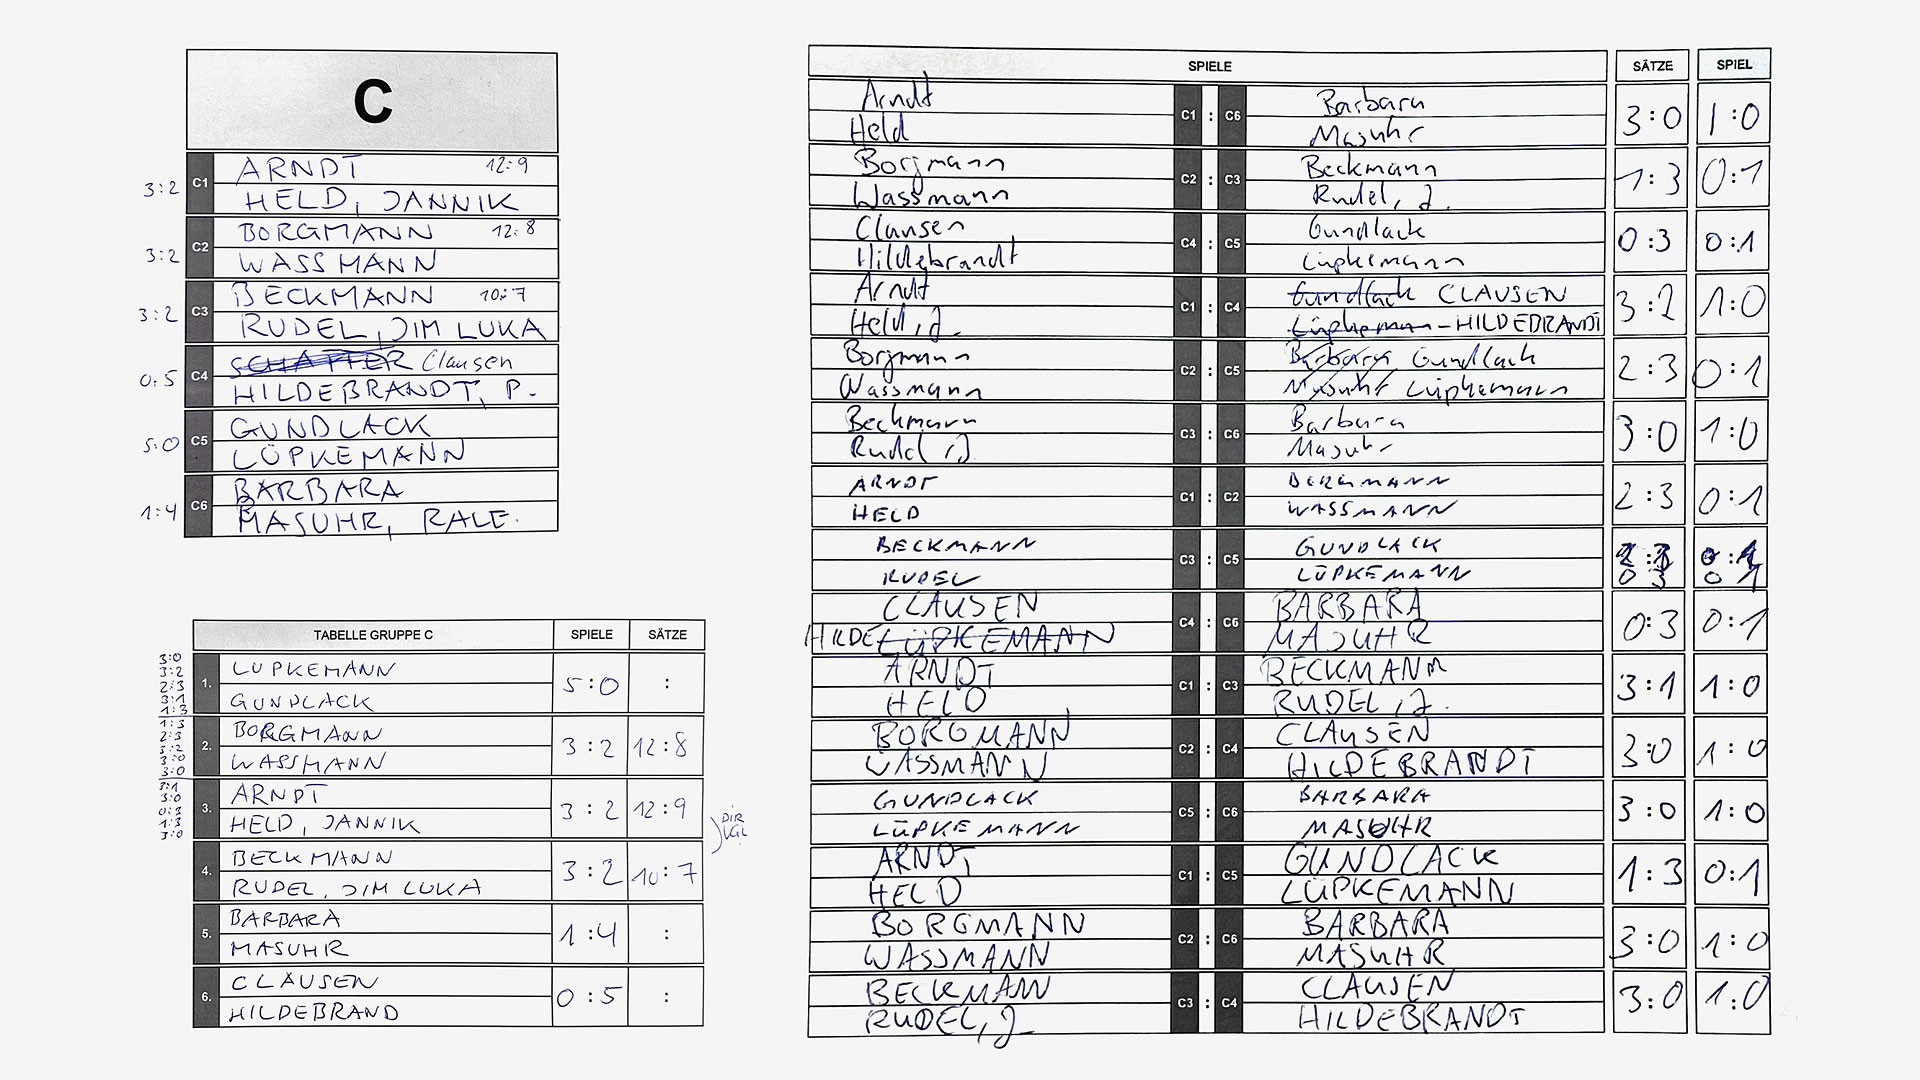 C
ARNDT 12:9
3:2 C1
HELD, JANNIK
BORGMANN 12:8
3:2 C2
WASSMANN
BECKMANN 10:7
3:2 C3
RUDEL, JIM LUKA
SCHÄFFER Clausen
0:5 C4
HILDEBRANDT, P.
GUNDLACK
5:0 C5
LÜPKEMANN
BARBARA
1:4 C6
MASUHR, RALF.
TABELLE GRUPPE C SPIELE SÄTZE
3:0
3:2
2:3
3:1
1:3
1:3
2:3
3:2
3:0
3:0
3:1
3:0
0:3
1:3
3:0
LÜPKEMANN
1. 5:0 :
GUNDLACK
BORGMANN
2. 3:2 12:8
WASSMANN
ARNDT
3. 3:2 12:9
HELD, JANNIK
DIR
VGL
BECKMANN
4. 3:2 10:7
RUDEL, JIM LUKA
BARBARA
5. 1:4 :
MASUHR
CLAUSEN
6. 0:5 :
HILDEBRAND
SPIELE SÄTZE SPIEL
Arndt Barbara
C1 : C6 3:0 1:0
Held Masuhr
Borgmann Beckmann
C2 : C3 1:3 0:1
Wassmann Rudel, J.
Clausen Gundlack
C4 : C5 0:3 0:1
Hildebrandt Lüpkemann
Arndt Gundlack CLAUSEN
C1 : C4 3:2 1:0
Held, J. Lüpkemann - HILDEBRANDT
Borgmann Barbara Gundlack
C2 : C5 2:3 0:1
Wassmann Masuhr Lüpkemann
Beckmann Barbara
C3 : C6 3:0 1:0
Rudel, J. Masuhr
ARNDT BORGMANN
C1 : C2 2:3 0:1
HELD WASSMANN
BECKMANN GUNDLACK
C3 : C5
RUDEL LÜPKEMANN 0:3 0:1
CLAUSEN BARBARA
C4 : C6 0:3 0:1
HILDE LÜPKEMANN MASUHR
ARNDT BECKMANN
C1 : C3 3:1 1:0
HELD RUDEL, J.
BORGMANN CLAUSEN
C2 : C4 3:0 1:0
WASSMANN HILDEBRANDT
GUNDLACK BARBARA
C5 : C6 3:0 1:0
LÜPKEMANN MASUHR
ARNDT GUNDLACK
C1 : C5 1:3 0:1
HELD LÜPKEMANN
BORGMANN BARBARA
C2 : C6 3:0 1:0
WASSMANN MASUHR
BECKMANN CLAUSEN
C3 : C4 3:0 1:0
RUDEL, J. HILDEBRANDT